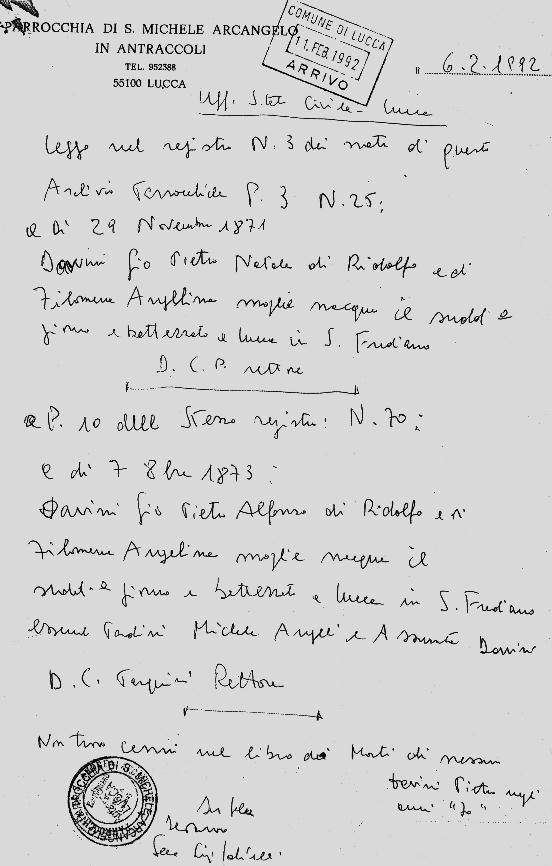 PARROCCHIA DI S. MICHELE ARCANGELO
IN ANTRACCOLI
TEL. 952388
55100 LUCCA
COMUNE DI LUCCA
11. FEB. 1992
ARRIVO
6.2.1992
Uff. Stat Civile - Lucca
Leggo nel registro N. 3 dei nati di questo
Archivio Parrocchiale P. 3 N. 25;
a Di 29 Novembre 1871
Davini Gio Pietro Natale di Ridolfo e di
Filomena Angelina moglie nacque il sudd e
giorno e battezzato a Lucca in S. Frediano
D. C. P. rettore
a P. 10 dello Stesso registro: N. 70;
a di 7 8bre 1873:
Davini Gio Pietro Alfonso di Ridolfo e di
Filomena Angelina moglie nacque il
sudd. e giorno e battezzato a Lucca in S. Frediano
Michele Angeli e Assunta Davini
D. C. Rettore
Non trovo cenni nel libro dei Morti di nessun
Davini Pietro negli
anni "70"
In fede
PARROCCHIA DI S. MICHELE ARCANGELO